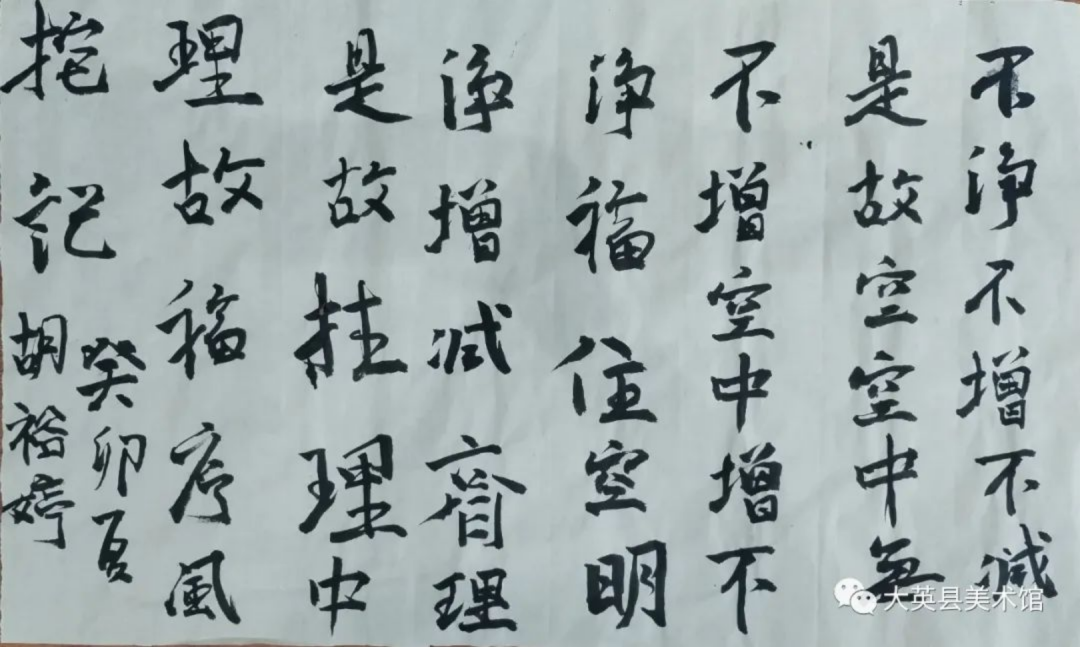 不净不增不减
是故空空中無
不增空中增不
净福住空明
净增减齊理
是故挂理中
理故福序風
挖記
癸卯夏
胡裕婷
大英县美术馆